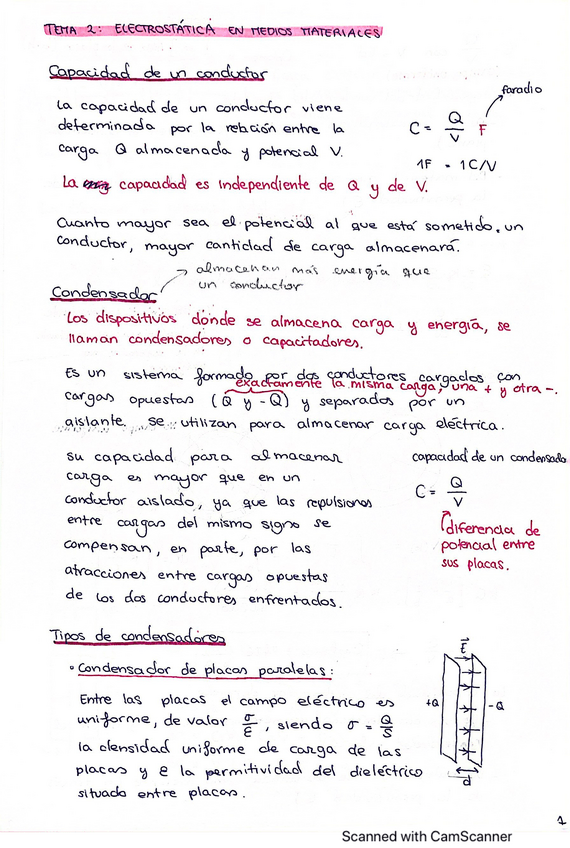 TEMA 2: ELECTROSTÁTICA EN MEDIOS MATERIALES
Capacidad de un conductor
La capacidad de un conductor viene
determinada por la relación entre la
carga Q almacenada y potencial V.
faradio
C = Q/V F
1F = 1C/V
La capacidad es independiente de Q y de V.
Cuanto mayor sea el potencial al que está sometido, un
conductor, mayor cantidad de carga almacenará.
→ almacenan más energía que
un conductor
Condensador
Los dispositivos donde se almacena carga y energía, se
llaman condensadores o capacitadores.
Es un sistema formado por dos conductores cargados con
exactamente la misma carga, una + y otra -.
cargas opuestas (Q y -Q) y separados por un
aislante. Se utilizan para almacenar carga eléctrica.
Su capacidad para almacenar
carga es mayor que en un
conductor aislado, ya que las repulsiones
entre cargas del mismo signo se
compensan, en parte, por las
atracciones entre cargas opuestas
de los dos conductores enfrentados.
capacidad de un condensado
C = Q/V
diferencia de
potencial entre
sus placas.
Tipos de condensadores
• Condensador de placas paralelas:
Entre las placas el campo eléctrico es
uniforme, de valor σ/ε, siendo σ = Q/S
la densidad uniforme de carga de las
placas y ε la permitividad del dieléctrico
situado entre placas.
E
+Q
-Q
d
1
Scanned with CamScanner